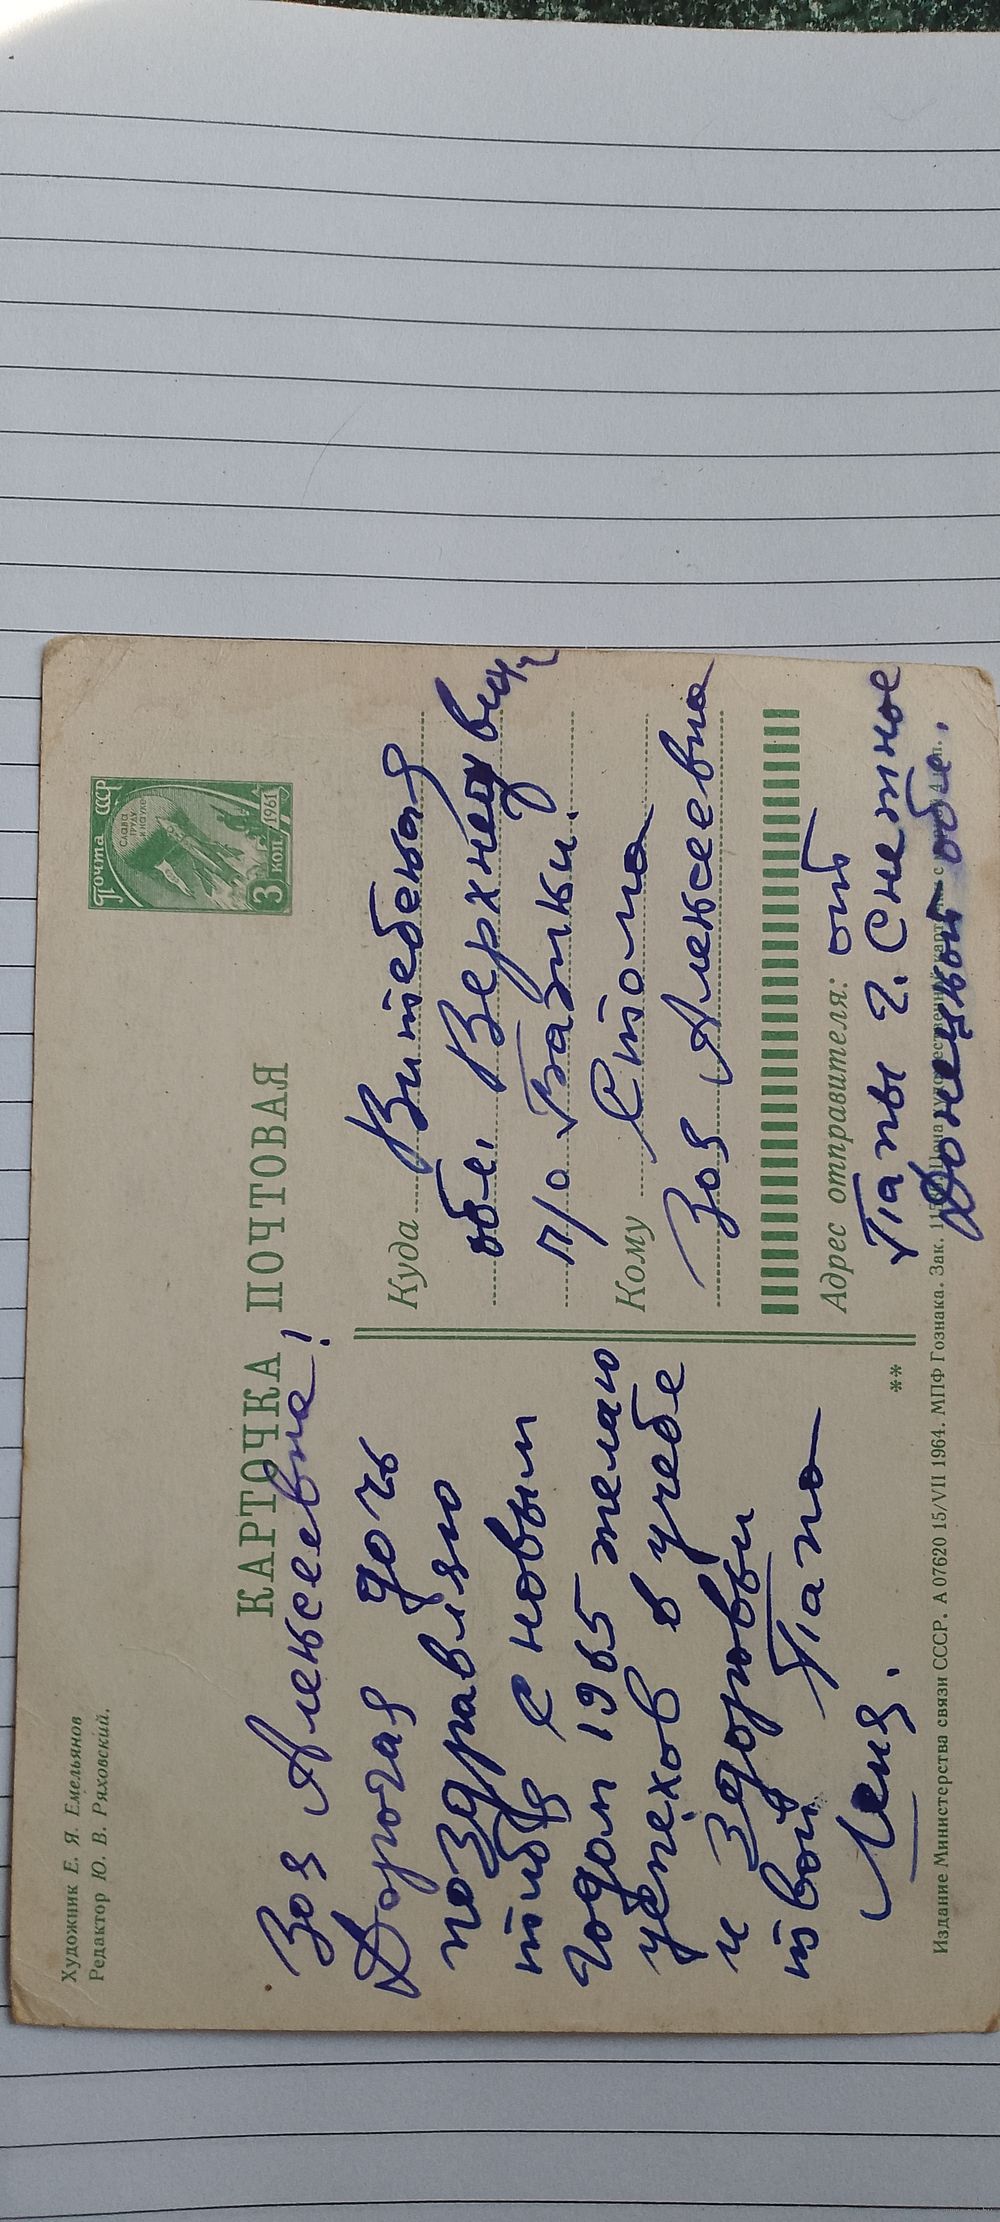 Художник Е. Я. Емельянов
Редактор Ю. В. Ряховский.
Почта СССР
СЛАВА
ТРУДУ
И НАУКЕ
3 коп.
1961
КАРТОЧКА ПОЧТОВАЯ
Зоя Алексеевна!
Дорогая дочь
поздравляю
тибя С новым
годом 1965 желаю
успехов в учебе
и Здоровьи
твой Папа
Леня.
Куда Витебская
обл. Верхнедвин
п/о Базики.
Кому Стома
Зоя Алексеевна
Адрес отправителя: от
Папы г. Снежное
Донецкой обл.
**
Издание Министерства связи СССР. А 07620 15/VII 1964. МПФ Гознака. Зак.